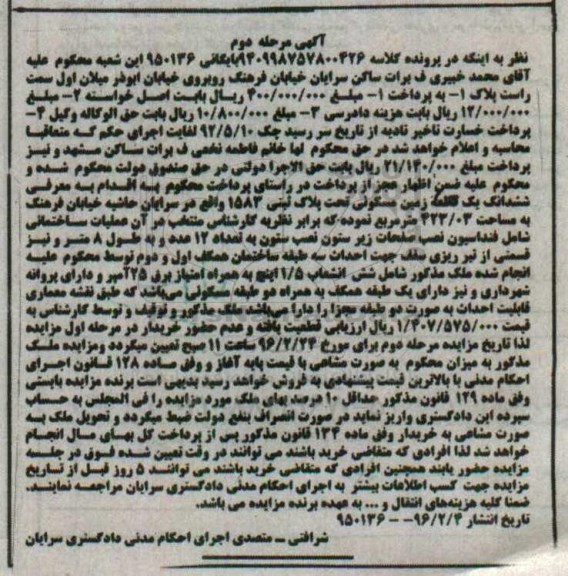 آگهی مرحله دوم
نظر به اینکه در پرونده کلاسه ۹۴۰۹۹۸۷۵۷۸۰۰۴۲۶بایگانی ۹۵۰۱۳۶ این شعبه محکوم علیه
آقای محمد خیبری ف برات ساکن سرایان خیابان فرهنگ روبروی خیابان ابوذر میلان اول سمت
راست پلاک ۱- به پرداخت ۱- مبلغ ۴۰۰/۰۰۰/۰۰۰ ریال بابت اصل خواسته ۲- مبلغ
۱۲/۰۰۰/۰۰۰ ریال بابت هزینه دادرسی ۳- مبلغ ۱۰/۸۰۰/۰۰۰ ریال بابت حق الوکاله وکیل ۴-
پرداخت خسارت تاخیر تادیه از تاریخ سر رسید چک ۹۲/۵/۱۰ لغایت اجرای حکم که متعاقبا
محاسبه و اعلام خواهد شد در حق محکوم لها خانم فاطمه نخعی ف برات ساکن مشهد و نیز
پرداخت مبلغ ۲۱/۱۴۰/۰۰۰ ریال بابت حق الاجرا دولتی در حق صندوق دولت محکوم شده و
محکوم علیه ضمن اظهار عجز از پرداخت در راستای پرداخت محکوم به اقدام به معرفی
ششدانگ یک قطعه زمین مسکونی تحت پلاک ثبتی ۱۵۸۳ واقع در سرایان حاشیه خیابان فرهنگ
به مساحت ۴۲۳/۰۳ مترمربع نموده که برابر نظریه کارشناس منتخب در آن عملیات ساختمانی
شامل فنداسیون نصب صفحات زیر ستون نصب ستون به تعداد ۱۲ عدد و به طول ۸ متر و نیز
قسمتی از تیر ریزی سقف جهت احداث سه طبقه ساختمان همکف اول و دوم توسط محکوم علیه
انجام شده ملک مذکور شامل شش انشعاب ۱/۵ اینچ به همراه امتیاز برق ۲۵آمپر و دارای پروانه
شهرداری و نیز دارای یک طبقه همکف با همراه دو طبقه مسکونی می‌باشد که طبق نقشه معماری
قابلیت احداث به صورت دو طبقه مجزا را دارا می‌باشد ملک مذکور و توقیف و توسط کارشناس به
قیمت ۱/۴۰۷/۵۷۵/۰۰۰ ریال ارزیابی قطعیت یافته و عدم حضور خریدار در مرحله اول مزایده
لذا تاریخ مزایده مرحله دوم برای مورخ ۹۶/۲/۲۴ ساعت ۱۱ صبح تعیین میگردد ومزایده ملک
مذکور به میزان محکوم به صورت مشاعی با قیمت پایه آغاز و وفق ماده ۱۲۸ قانون اجرای
احکام مدنی با بالاترین قیمت پیشنهادی به فروش خواهد رسید بدیهی است برنده مزایده بایستی
وفق ماده ۱۲۹ قانون مذکور حداقل ۱۰ درصد بهای ملک مورد مزایده را فی المجلس به حساب
سپرده این دادگستری واریز نماید در صورت انصراف بنفع دولت ضبط میگردد و تحویل ملک به
صورت مشاعی به خریدار وفق ماده ۱۳۴ قانون مذکور پس از پرداخت کل بهای مال انجام
خواهد شد لذا افرادی که متقاضی خرید باشند می توانند در وقت تعیین شده فوق در جلسه
مزایده حضور یابند همچنین افرادی که متقاضی خرید باشند می توانند ۵ روز قبل از تاریخ
مزایده جهت کسب اطلاعات بیشتر به اجرای احکام مدنی دادگستری سرایان مراجعه نمایند.
ضمنا کلیه هزینه‌های انتقال و ... به عهده برنده مزایده می باشد.
تاریخ انتشار ۹۶/۲/۴- - ۹۵۰۱۳۶
شرافتی - متصدی اجرای احکام مدنی دادگستری سرایان